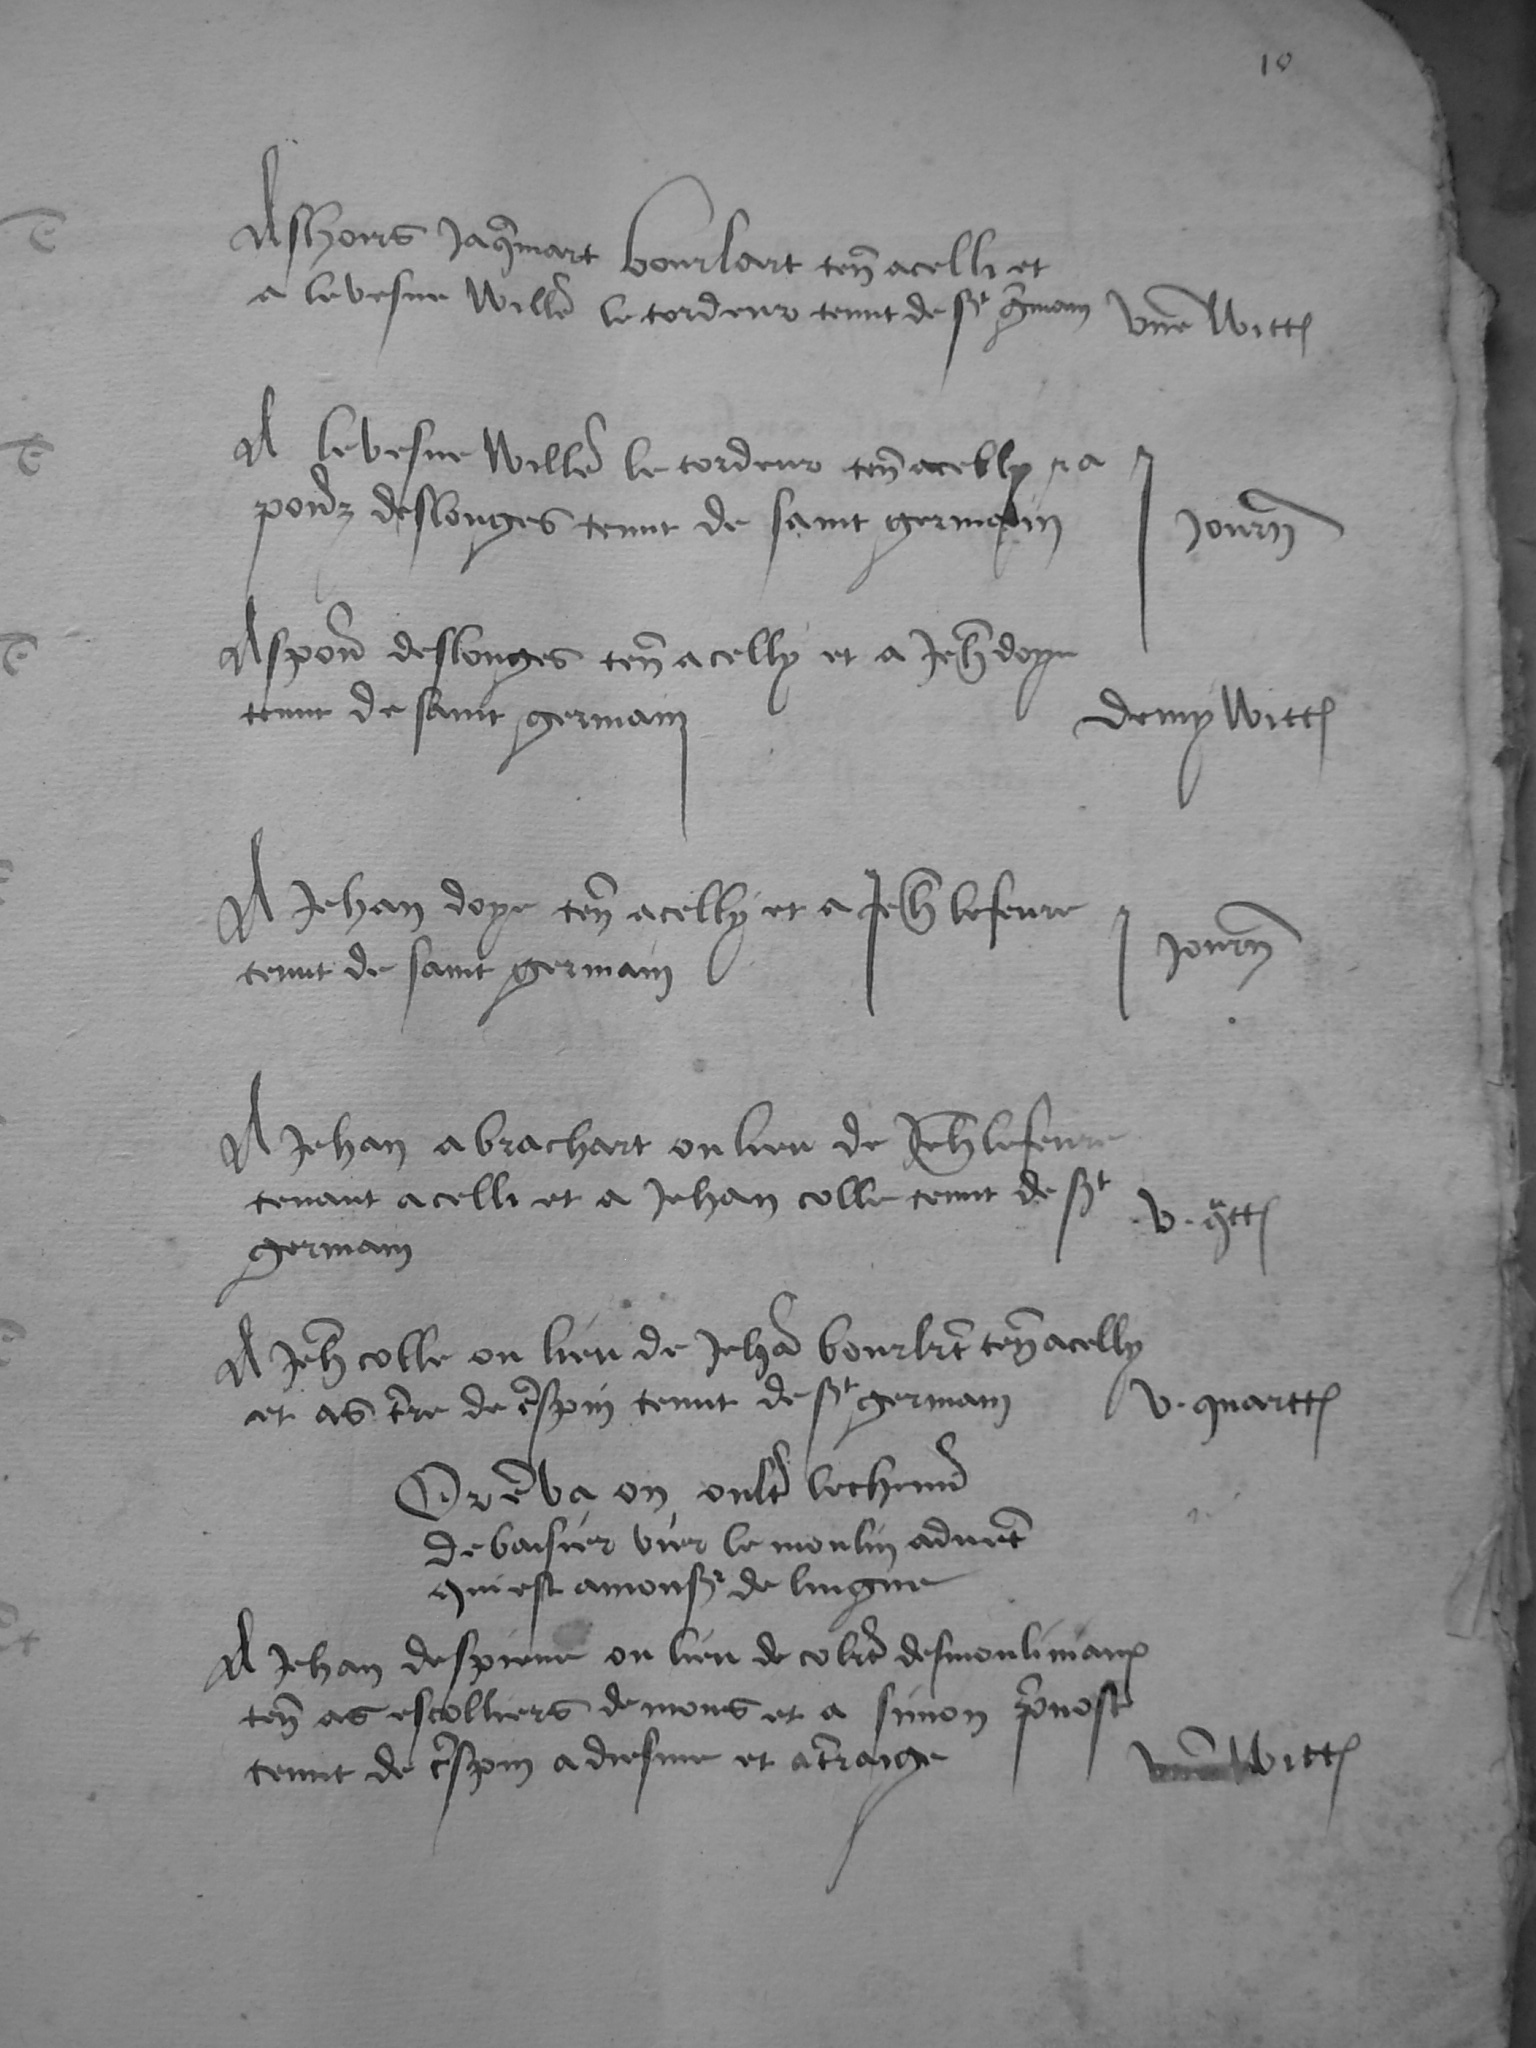 10
As hoirs Jaqmart bourlart ten acelli et
a levesne Wille le tordeur tenut de st gmain vne Witt
A levesne Willem le tordeur ten acelly
deslonges tenut de saint germain J Journ
As deslonges ten acelly et a Jeh doye
tenut de saint germain demy Witt
A Jehan doye ten acelly et a Jeh lefevre
tenut de saint germain J Journ
A Jehan abrachart ou lieu de Jeh lefevre
tenant acelli et a Jehan colle tenut de st
germain .v. qtt
A Jeh colle ou lieu de Jehan bourlrt ten acelly
et as tre de crespin tenut de st germain v. quartt
Or en va on oult le chemin
de baisier vier le moulin a vent
qui est a monsr de lingne
A Jehan despiene ou lieu de colrt desmouliniaux
ten as escolliers de mons et a simon pvost
tenut de cspin a diesme et a traige Witt